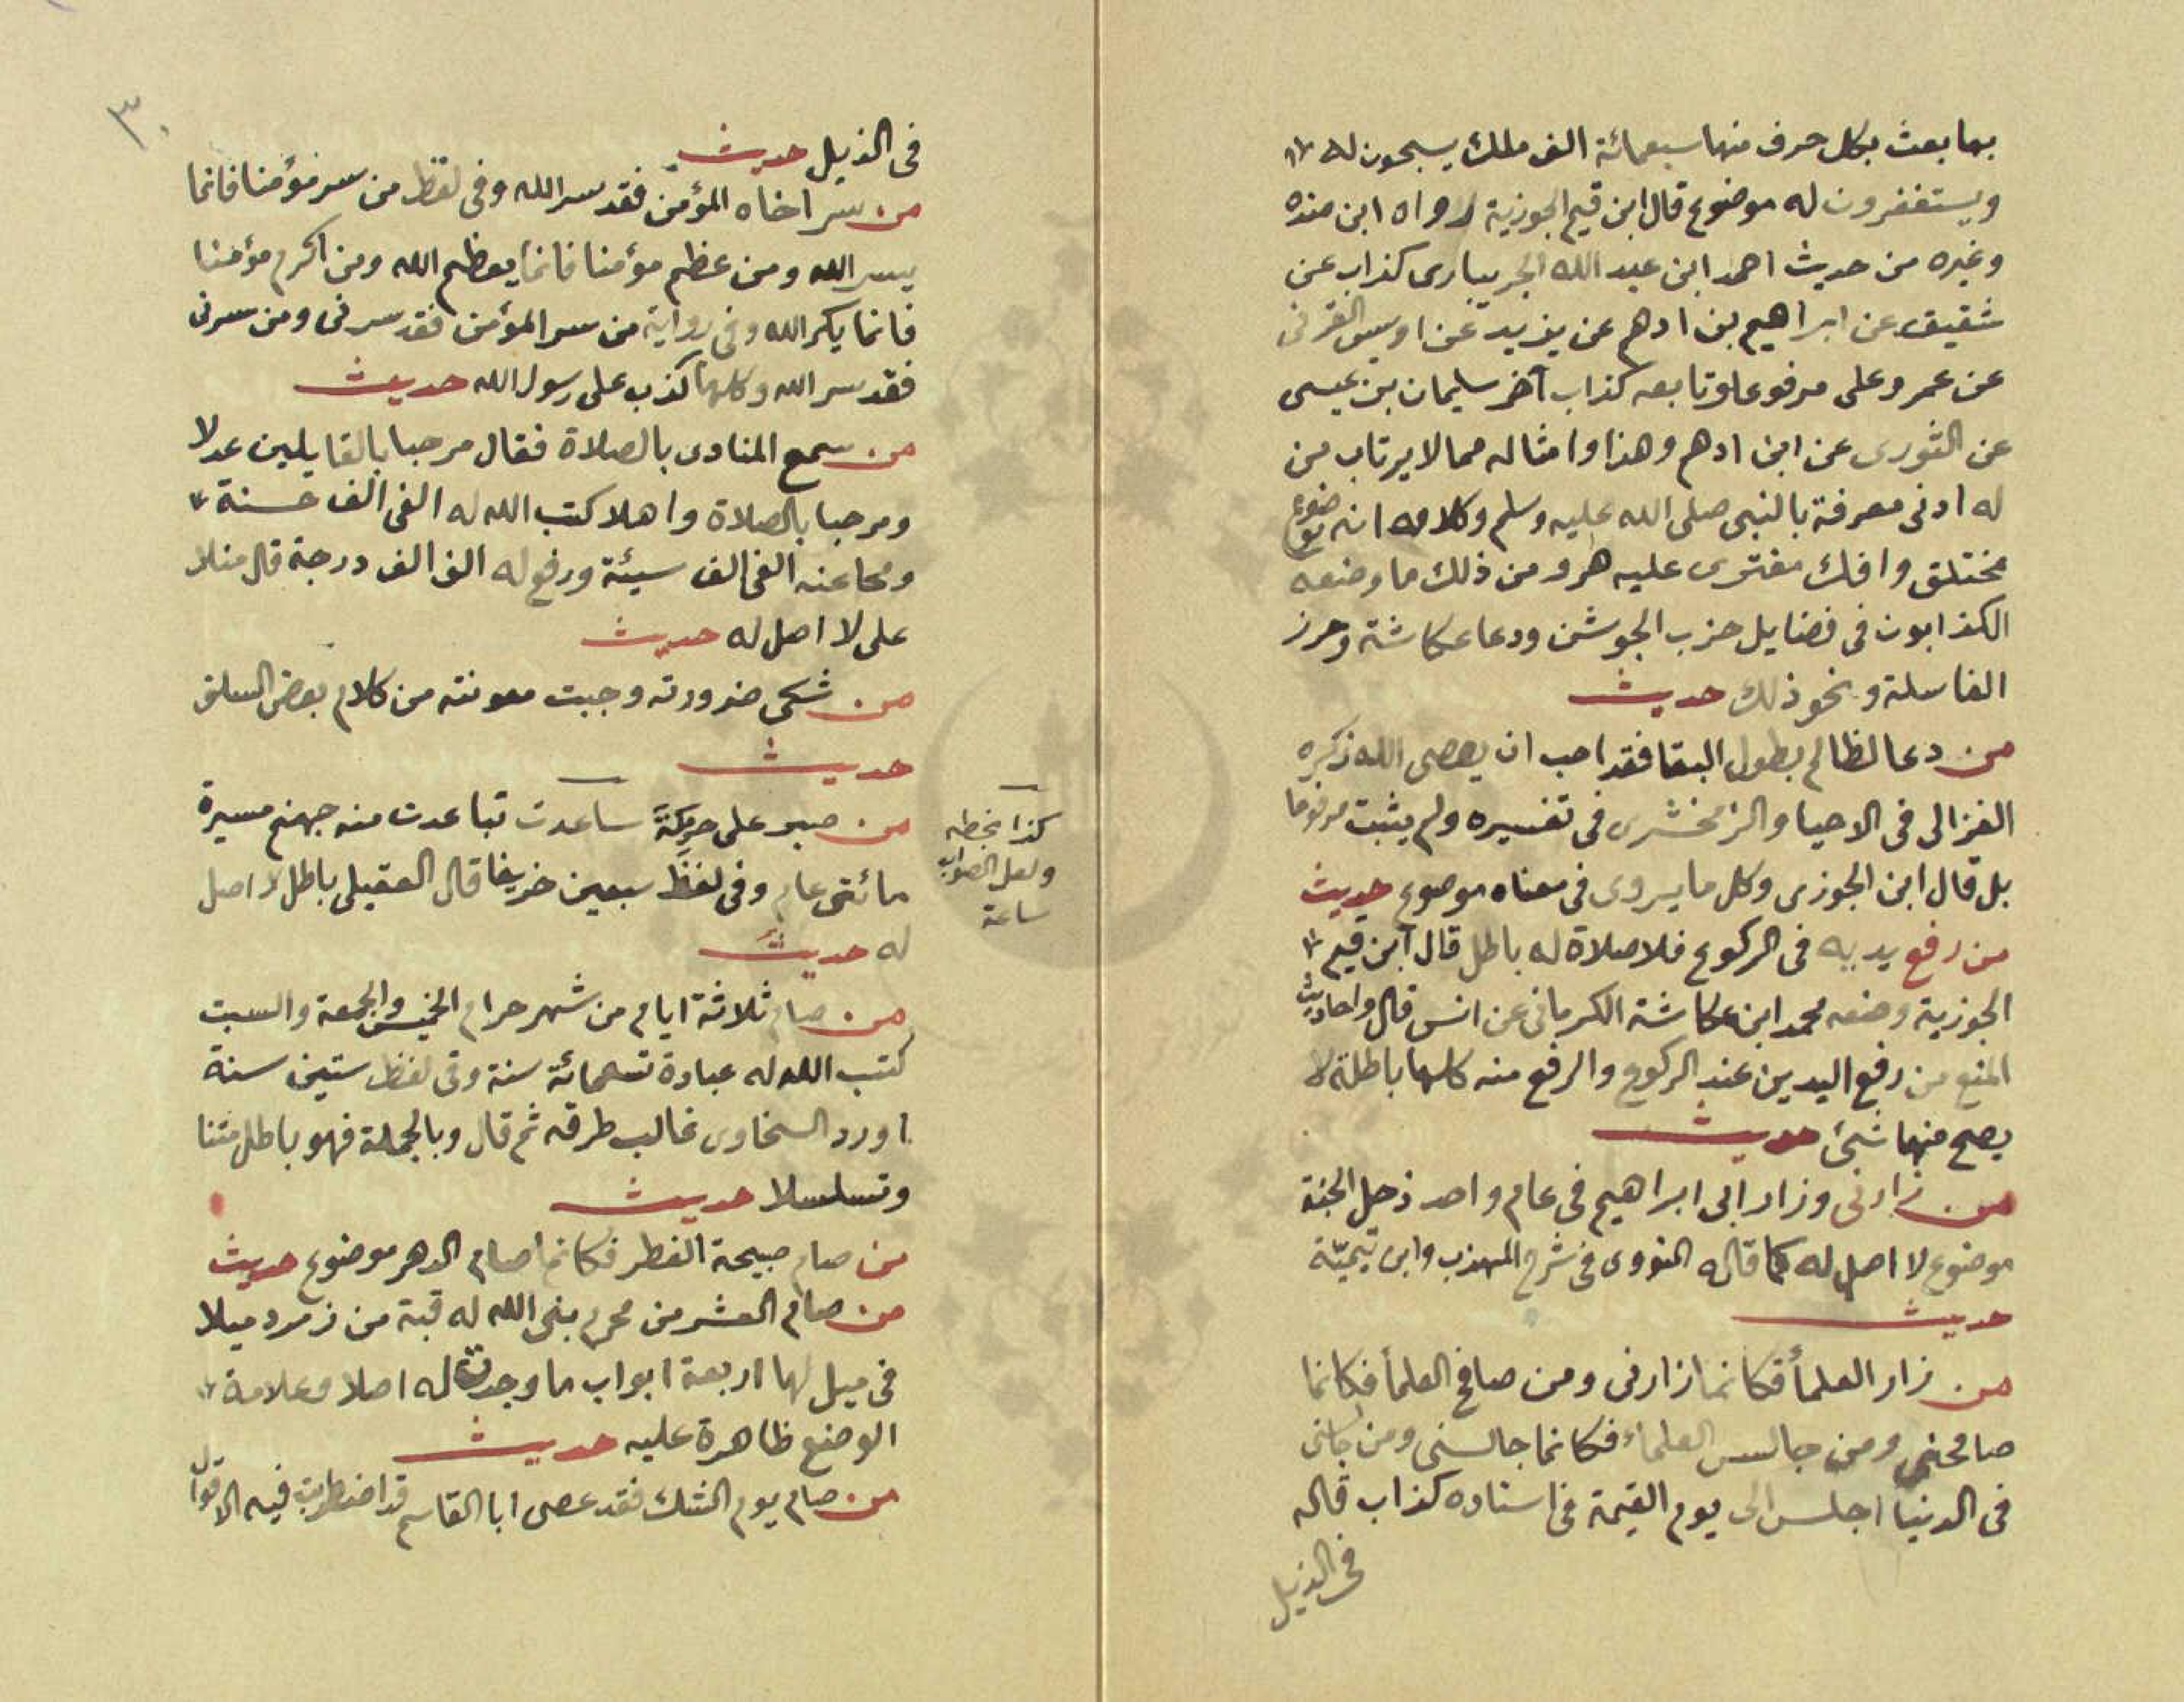 بها بعث بكل حرف منها سبعمائة الف ملك يسبحون له
ويستغفرون له موضوع قال ابن قيم الجوزية رواه ابن منده
وغيره من حديث احمد ابن عبد الله الجريبارى كذاب عن
شقيق عن ابراهيم بن ادهم عن يزيد عن اويس القرنى
عن عمر وعلى مرفوعا وتابعه كذاب آخر سليمان بن عيسى
عن الثورى عن ابن ادهم وهذا وامثاله مما لا يرتاب من
له ادنى معرفة بالنبى صلى الله عليه وسلم وكلامه انه موضوع
مختلق وافك مفترى عليه هر ومن ذلك ما وضعه
الكذابون فى فضايل حزب الجوشن ودعا عكاشة وحرز
الغاسلة ونحو ذلك حديث
من دعا لظالم بطول البقا فقد احب ان يعصى الله ذكره
الغزالى فى الاحيا والزمخشرى فى تفسيره ولم يثبت مرفوعا
بل قال ابن الجوزى وكل ما يروى فى معناه موضوع حديث
من رفع يديه فى الركوع فلا صلاة له باطل قال ابن قيم
الجوزية وضعه محمد ابن عكاشة الكرمانى عن انس قال واحاديث
المنع من رفع اليدين عند الركوع والرفع منه كلها باطلة لا
يصح منها شئ حديث
من زارنى وزار ابى ابراهيم فى عام واحد دخل الجنة
موضوع لا اصل له كما قاله النووى فى شرح المهذب وابن تيميّة
حديث
من زار العلمأ فكانما زارنى ومن صافح العلمأ فكانما
صافحنى ومن جالس العلماء فكانما جالسنى ومن جالسنى
فى الدنيا اجلس الى يوم القيمة فى اسناده كذاب قاله
فى الذيل
٣٠
فى الذيل حديث
من سر اخاه المؤمن فقد سر الله وفى لفظ من سر مؤمنا فانما
يسر الله ومن عظم مؤمنا فانما يعظم الله ومن اكرم مؤمنا
فانما يكرم الله وفى رواية من سر المؤمن فقد سرنى ومن سرنى
فقد سر الله وكلها كذب على رسول الله حديث
من سمع المنادى بالصلاة فقال مرحبا بالقايلين عدلا
ومرحبا بالصلاة واهلا كتب الله له الفى الف حسنة
ومحا عنه الفى الف سيئة ورفع له الف الف درجة قال منلا
على لا اصل له حديث
من شكى ضرورته وجبت معونته من كلام بعض السلف
حديث
من صبر على حر مكة ساعدت تباعدت منه جهنم مسيرة
مائتى عام وفى لفظ سبعين خريفا قال العقيلى باطل لا اصل
كذا بخطه
ولعل الصواب
ساعة
له حديث
من صام ثلاثة ايام من شهر حرام الخميس والجمعة والسبت
كتب الله له عبادة تسعمائة سنة وفى لفظ ستين سنة
اورد السخاوى غالب طرقه ثم قال وبالجملة فهو باطل متنا
وتسلسلا حديث
من صام صبيحة الفطر فكانما صام الدهر موضوع حديث
من صام العشر من محرم بنى الله له قبة من زمرد ميلا
فى ميل لها اربعة ابواب ما وجدت له اصلا وعلامة
الوضع ظاهرة عليه حديث
من صام يوم الشك فقد عصى ابا القاسم قد اضطربت فيه الاقوال